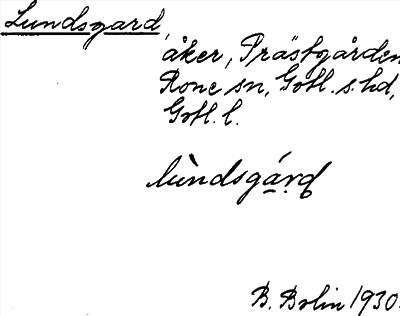 Lundsgard,
åker, Prästgården
Rone sn, Gotl. s. hd,
Gotl. l.
lùndsgá̱rḍ
B. Bolin 1930.